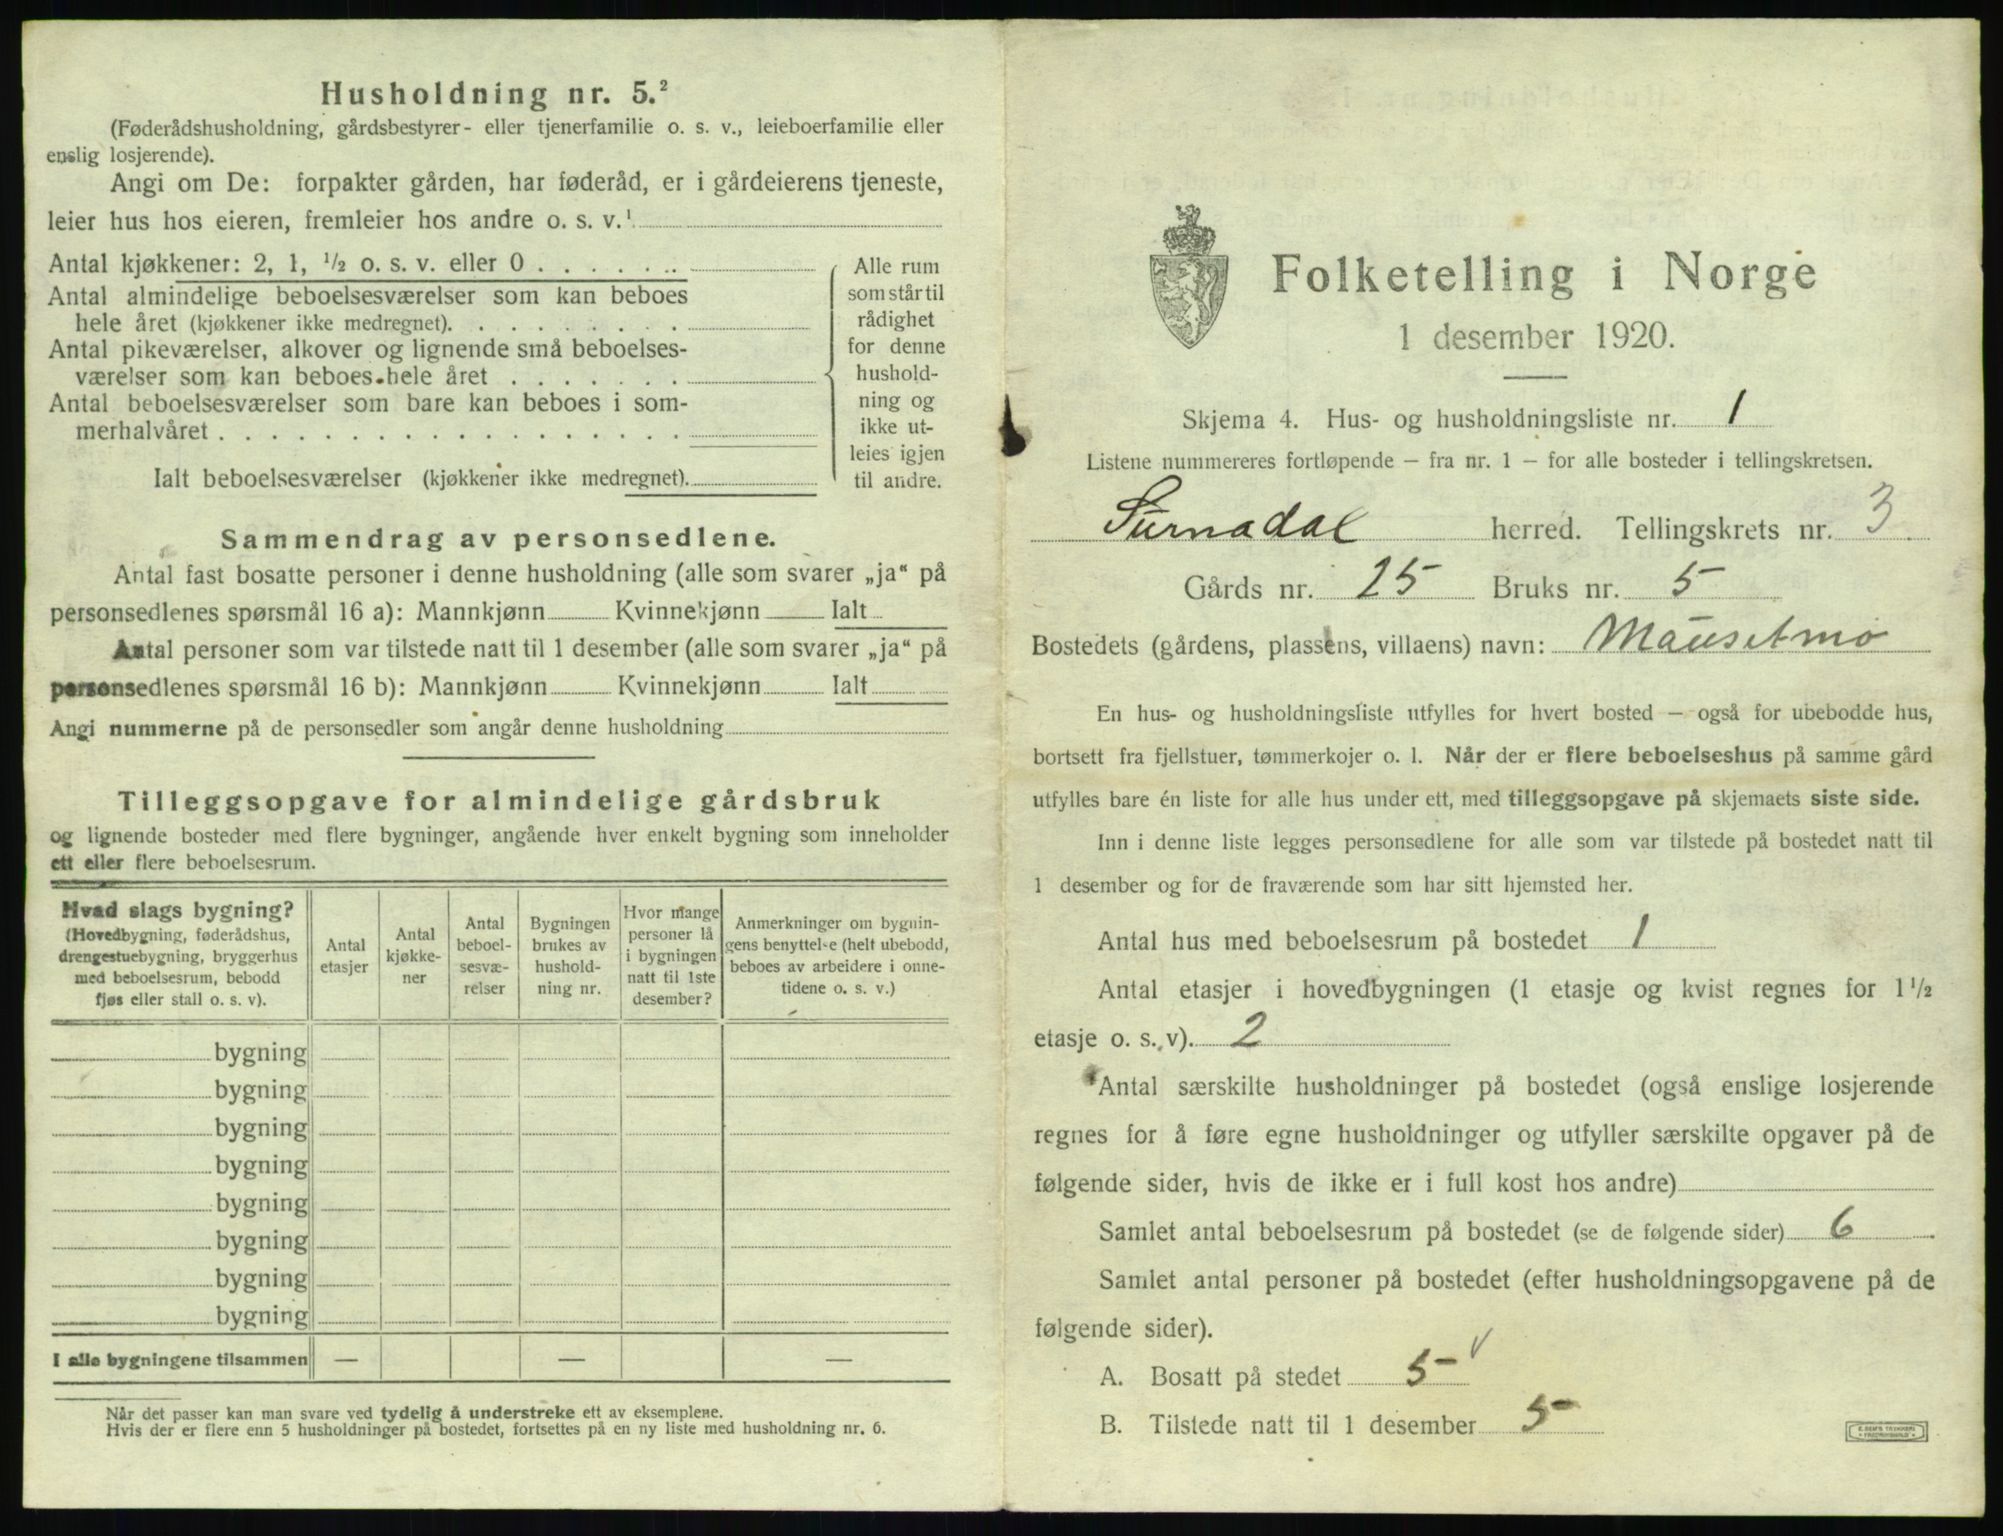 Husholdning nr. 5.²
(Føderådshusholdning, gårdsbestyrer- eller tjenerfamilie o. s. v., leieboerfamilie eller
enslig losjerende).
Angi om De: forpakter gården, har føderåd, er i gårdeierens tjeneste,
leier hus hos eieren, fremleier hos andre o. s. v.¹
Antal kjøkkener: 2, 1, ½ o. s. v. eller 0 . . . . . . .
Antal almindelige beboelsesværelser som kan beboes
hele året (kjøkkener ikke medregnet). . . . . . . . .
Antal pikeværelser, alkover og lignende små beboelses-
værelser som kan beboes hele året . . . . . . .
Antal beboelsesværelser som bare kan beboes i som-
merhalvåret . . . . . . . . . . . . . . . . . .
Ialt beboelsesværelser (kjøkkener ikke medregnet).
Alle rum
som står til
rådighet
for denne
hushold-
ning og
ikke ut-
leies igjen
til andre.
Sammendrag av personsedlene.
Antal fast bosatte personer i denne husholdning (alle som svarer „ja“ på
personsedlenes spørsmål 16 a): Mannkjønn Kvinnekjønn Ialt
Antal personer som var tilstede natt til 1 desember (alle som svarer „ja“ på
personsedlenes spørsmål 16 b): Mannkjønn Kvinnekjønn Ialt
Angi nummerne på de personsedler som angår denne husholdning
Tilleggsopgave for almindelige gårdsbruk
og lignende bosteder med flere bygninger, angående hver enkelt bygning som inneholder
ett eller flere beboelsesrum.
Hvad slags bygning?
(Hovedbygning, føderådshus,
drengestuebygning, bryggerhus
med beboelsesrum, bebodd
fjøs eller stall o. s. v).
Antal
etasjer
Antal
kjøkke-
ner
Antal
beboel-
sesvæ-
relser
Bygningen
brukes av
hushold-
ning nr.
Hvor mange
personer lå
i bygningen
natt til 1ste
desember?
Anmerkninger om bygnin-
gens benyttelse (helt ubebodd,
beboes av arbeidere i onne-
tidene o. s. v.)
bygning
bygning
bygning
bygning
bygning
bygning
bygning
bygning
I alle bygningene tilsammen — — —
Når det passer kan man svare ved tydelig å understreke ett av eksemplene.
Hvis der er flere enn 5 husholdninger på bostedet, fortsettes på en ny liste med husholdning nr. 6.
Folketelling i Norge
1 desember 1920.
Skjema 4. Hus- og husholdningsliste nr. 1
Listene nummereres fortløpende – fra nr. 1 – for alle bosteder i tellingskretsen.
Surnadal herred. Tellingskrets nr. 3
Gårds nr. 25 Bruks nr. 5
Bostedets (gårdens, plassens, villaens) navn: Mausetmo
En hus- og husholdningsliste utfylles for hvert bosted – også for ubebodde hus,
bortsett fra fjellstuer, tømmerkojer o. l. Når der er flere beboelseshus på samme gård
utfylles bare én liste for alle hus under ett, med tilleggsopgave på skjemaets siste side.
Inn i denne liste legges personsedlene for alle som var tilstede på bostedet natt til
1 desember og for de fraværende som har sitt hjemsted her.
Antal hus med beboelsesrum på bostedet 1
Antal etasjer i hovedbygningen (1 etasje og kvist regnes for 1½
etasje o. s. v). 2
Antal særskilte husholdninger på bostedet (også enslige losjerende
regnes for å føre egne husholdninger og utfyller særskilte opgaver på de
følgende sider, hvis de ikke er i full kost hos andre)
Samlet antal beboelsesrum på bostedet (se de følgende sider) 6
Samlet antal personer på bostedet (efter husholdningsopgavene på de
følgende sider).
A. Bosatt på stedet 5 v
B. Tilstede natt til 1 desember 5